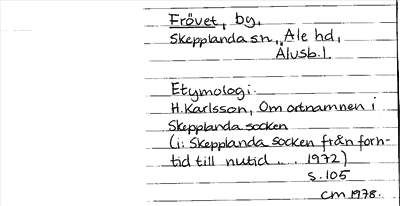 Frövet, by,
Skepplanda sn., Ale hd,
Älvsb. l.
Etymologi.
H. Karlsson, Om ortnamnen i
Skepplanda socken
(i: Skepplanda socken från forn-
tid till nutid ... 1972)
s. 105
CM 1978.